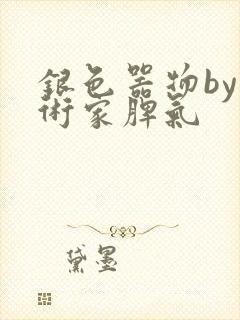 銀色器物by
術家脾氣
黛墨